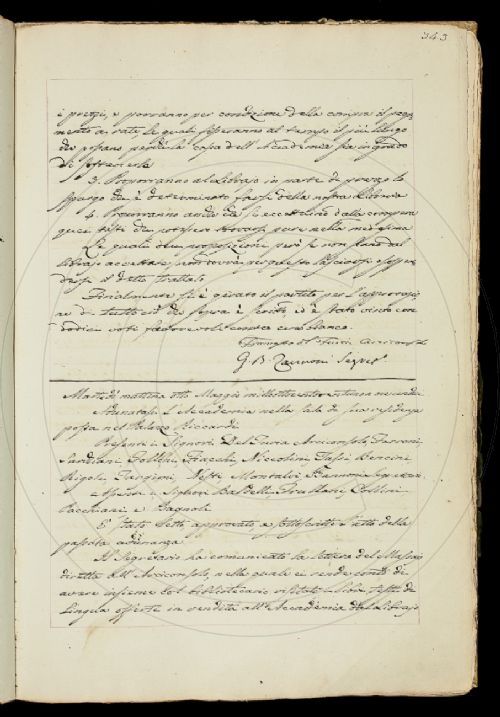 343
i prezzi, e porranno per condizione della compra il paga
mento a rate, le quali fisseranno al tempo il più lungo
che possano perchè la cassa dell'Accademia sia in grado
di
3. Proporranno al Librajo in parte di prezzo lo
è determinato farsi della nostra Libreria
4. Procurranno anche che si eccettuino dalla compra
quei testi che potessero trovarsi pure nella medesima
Le quali due proposizioni però se non siano dal
Librajo accettate, non dovrà per questo lasciarsi
dersi il detto trattato
Finalmente si è girato il partito per l'approvazio
ne di tutto ciò che sopra è scritto, ed è stato vinto con
dodici voti favorevoli contro uno bianco.
Del Furia Arciconsolo
G. B. Zannoni Segret.º
Martedì mattina otto Maggio milleottocento
Adunatasi l'Accademia nella sala di sua residenza
posta nel Palazzo Riccardi
Presenti i Signori Del Furia Arciconsolo, Ferroni
Sarchiani, Follini, Fiacchi, Niccolini, Tassi, Bencini
Rigoli, Targioni, Nesti, Montalvi, Zannoni Segreter.
Assenti i Signori Baldelli, Frullani, Collini
Pacchiani e Bagnoli
È stato letto approvato, e sottoscritto l'atto della
passata adunanza
Il Segretario ha comunicato la lettera del Massai
diretta all'Arciconsolo, nella quale ei rende conto di
avere insieme col bibliotecario visitate i libri testi di
Lingua offerti in vendita all'Accademia dal Librajo